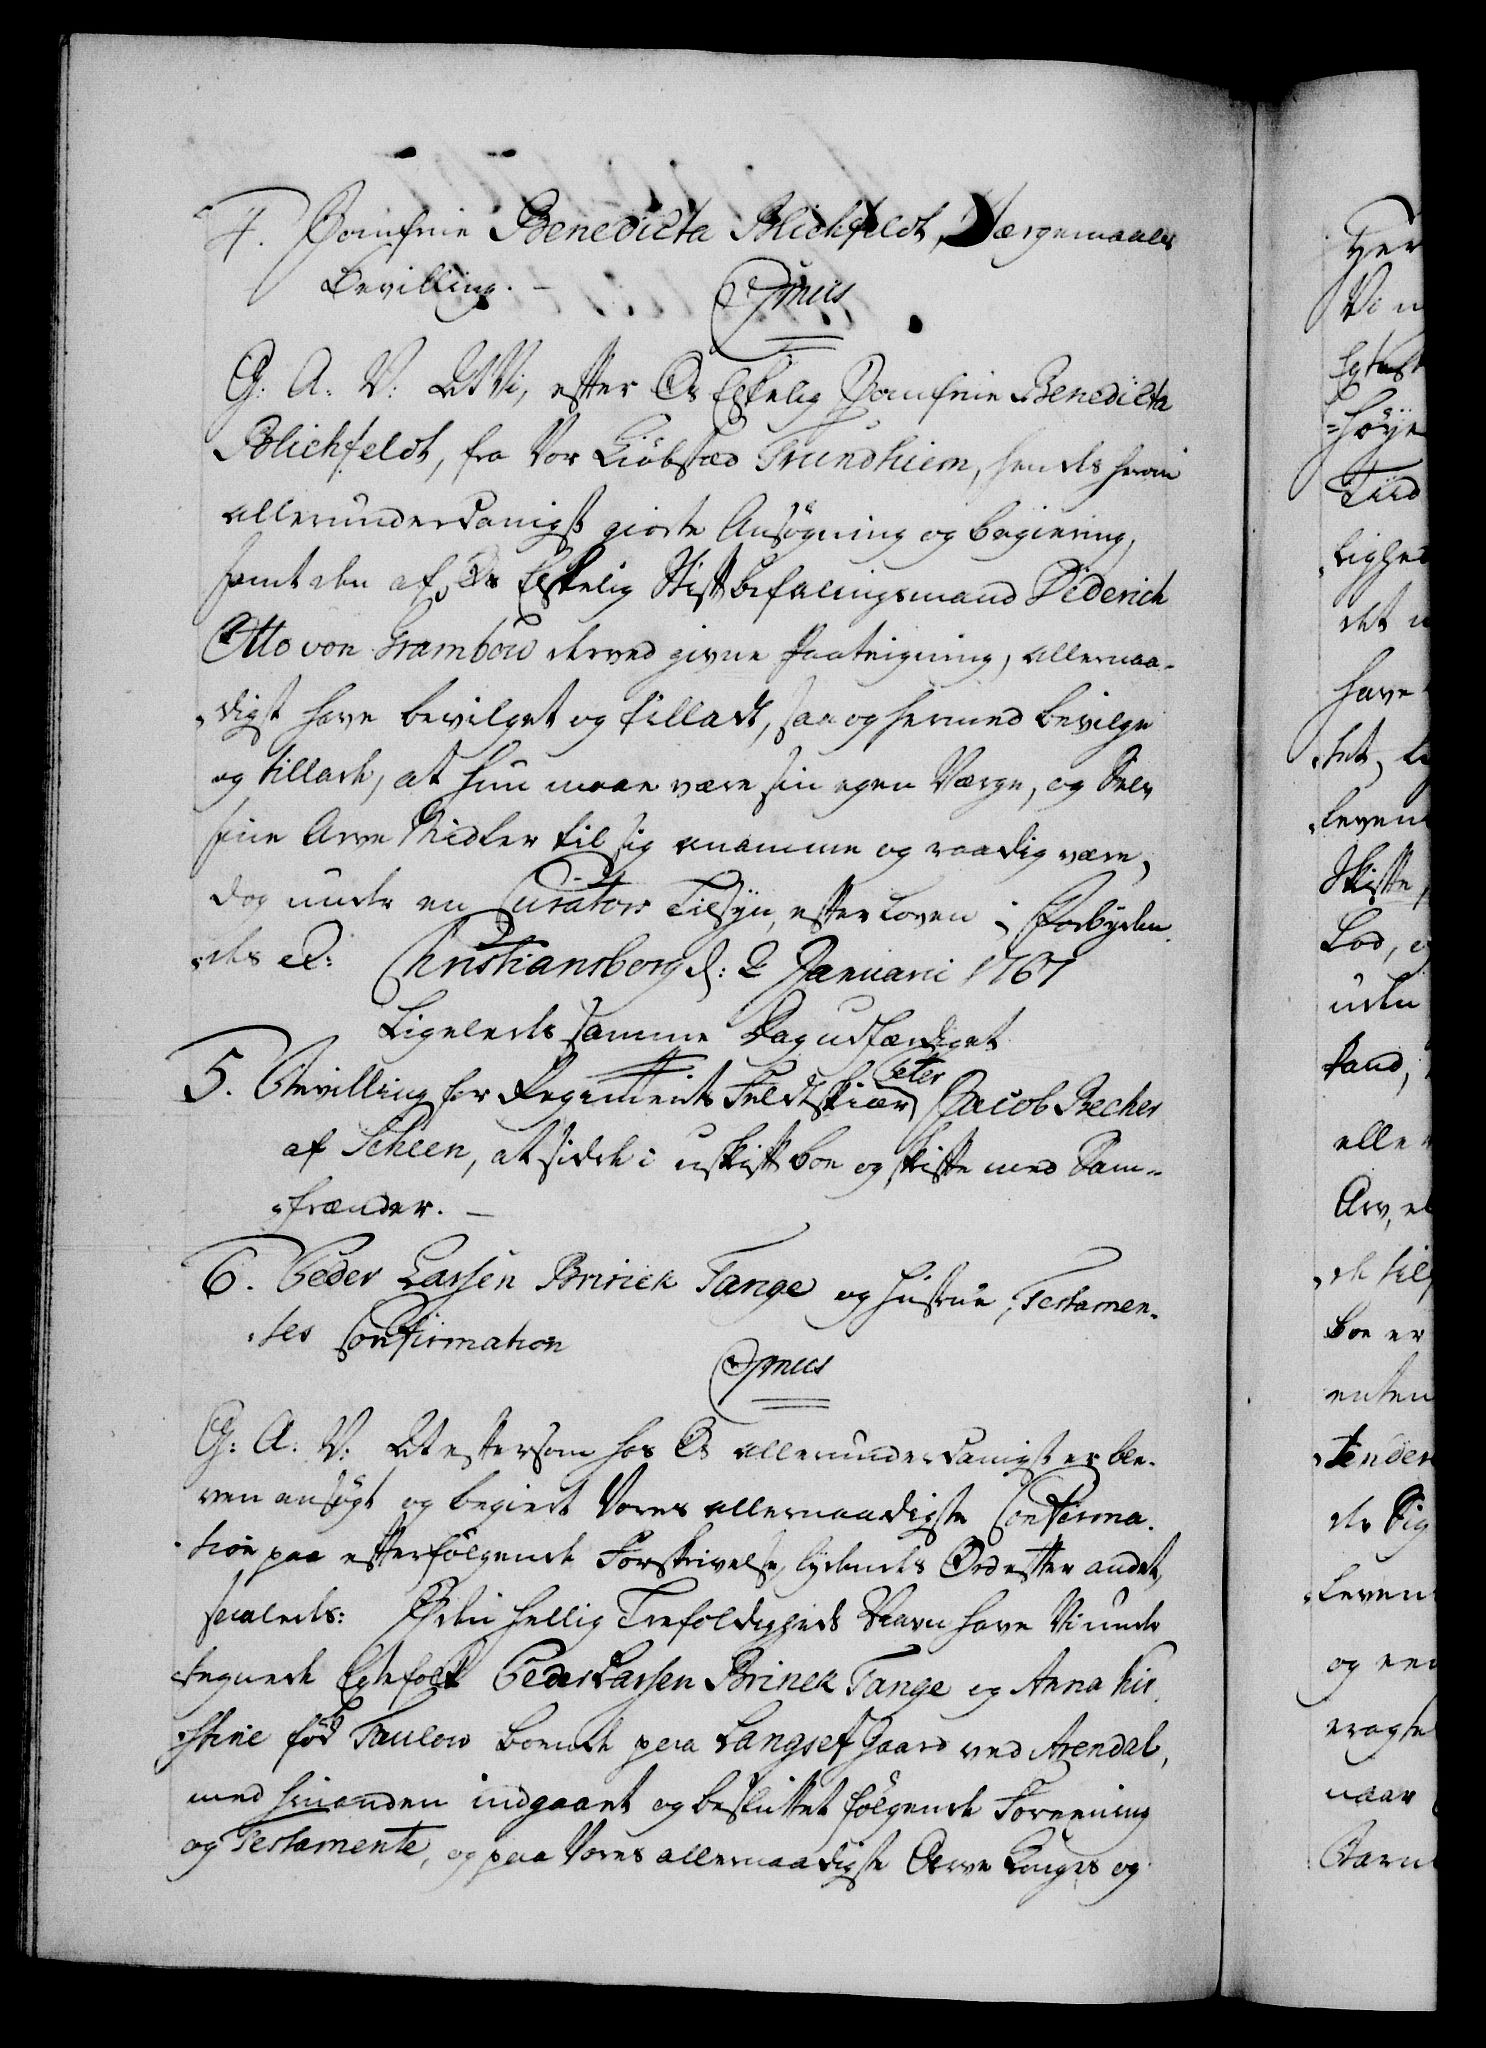 4. Jomfrue Benedicta Blichfeldt, Værgemaals
Bevilling. —
C7mus
G: A: V: At Vi, efter Os Elskelig Jomfrue Benedicta
Blichfeldt, fra Vor Kiöbstæd Trundhiem, hendes herom
allerunderdanigst giorte Ansøgning og begiering,
samt den af Os Elskelig Stiftbefalingsmand Diderich
Otto von Grambow derved givne Paategning, allernaa-
digst have bevilget og tilladt, saa og hermed bevilge
og tillade, at hun maae være sin egen Værge, og Selv
sine Arve Midler til sig annamme og raadig være,
dog under en Curators Tilsyn, efter Loven; Forbyden-
des &: Christiansborg d: 2 Januarii 1767
Ligeledes samme Dag udfærdiget
5. Bevilling for Regiments Feldtskiær Peter Jacob Becher
af Scheen, at sidde i uskift Boe og skifte med Sam-
frænder. —
6. Peder Larsen Brinck Tange og Hustrue, Testamen-
tes Confirmation
G: A: V: At eftersom hos Os allerunderdanigst er ble-
ven ansøgt og begiert Vores allernaadigste Confirma-
tion paa efterfølgende Forskrivelse, lydendes Ord efter andet,
saaledes: I den hellig Trefoldigheds Navn have Vi under
tegnede Egtefolk Peder Larsen Brinck Tange og Anna Kir-
stine fød Taulow boende paa Langsef Gaard ved Arendal,
med hinanden indgaaet og besluttet følgende Foreening
og Testamente, og paa Vores allernaadigste Arve Konges og